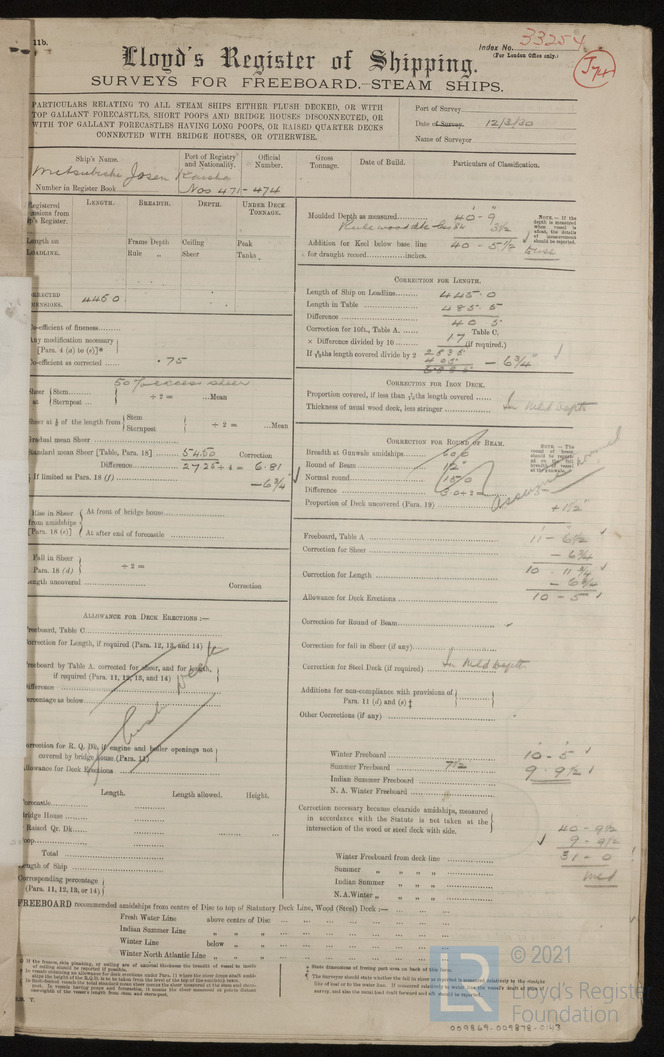 11b.
Lloyd's Register of Shipping.
Index No. 33254
(For London Office only.)
J74
SURVEYS FOR FREEBOARD.—STEAM SHIPS.
PARTICULARS RELATING TO ALL STEAM SHIPS EITHER FLUSH DECKED, OR WITH
TOP GALLANT FORECASTLES, SHORT POOPS AND BRIDGE HOUSES DISCONNECTED, OR
WITH TOP GALLANT FORECASTLES HAVING LONG POOPS, OR RAISED QUARTER DECKS
CONNECTED WITH BRIDGE HOUSES, OR OTHERWISE.
Port of Survey
Date of Survey 12/3/30
Name of Surveyor
Ship's Name. Port of Registry and Nationality. Official Number. Gross Tonnage. Date of Build. Particulars of Classification.
Mitsubishi Josen Kaisha
Number in Register Book Nos 471-474
LENGTH. BREADTH. DEPTH. UNDER DECK TONNAGE.
Frame Depth Ceiling Peak
Rule " Sheer Tanks
4450
Co-efficient of fineness
Any modification necessary
[Para. 4 (a) to (e)]*
Co-efficient as corrected .75
50% excess sheer
Sheer at Stem Sternpost ÷ 2 = ...Mean
Sheer at ⅛ of the length from Stem Sternpost ÷ 2 = ...Mean
Gradual mean Sheer
Standard mean Sheer [Table, Para. 18] 54.50 Correction
Difference 27.25 ÷ 4 = 6.81
If limited as Para. 18 (f) -6¾
Rise in Sheer from amidships [Para. 18 (e)] At front of bridge house
At after end of forecastle
Fall in Sheer Para. 18 (d) ÷ 2 =
Length uncovered Correction
ALLOWANCE FOR DECK ERECTIONS :—
Freeboard, Table C
Correction for Length, if required (Para. 12, 13, and 14)
Freeboard by Table A. corrected for sheer, and for length,
if required (Para. 11, 12, 13, and 14)
Difference
Percentage as below
flush deck
Correction for R. Q. Dk, if engine and boiler openings not
covered by bridge house (Para. 11)
Allowance for Deck Erections
Length. Length allowed. Height.
Forecastle
Bridge House
Raised Qr. Dk
Poop
Total
Length of Ship
Corresponding percentage
(Para. 11, 12, 13, or 14)
Moulded Depth as measured 40-9
3½
Addition for Keel below base line 40-5½
for draught record inches.
NOTE.—If the depth is measured when vessel is afloat, the details of measurement should be reported.
CORRECTION FOR LENGTH.
Length of Ship on Loadline 445.0
Length in Table 485.5
Difference 40 5
Correction for 10ft., Table A. 17 Table C.
× Difference divided by 10 (if required.)
If 6/10ths length covered divide by 2 2835
405
6885 - 6¾"
CORRECTION FOR IRON DECK.
Proportion covered, if less than 7/10ths length covered
Thickness of usual wood deck, less stringer In Mld Depth
CORRECTION FOR ROUND OF BEAM.
Breadth at Gunwale amidships 60.0
Round of Beam 12"
Normal round 15.0
Difference 3.0÷2=
Proportion of Deck uncovered (Para. 19)
assumed normal
+1½"
Freeboard, Table A 11 - 6½
Correction for Sheer - 6¾
10 - 11¾
Correction for Length - 6¾
10 - 5
Allowance for Deck Erections
Correction for Round of Beam
Correction for fall in Sheer (if any)
Correction for Steel Deck (if required) In Mld Depth
Additions for non-compliance with provisions of
Para. 11 (d) and (e) ‡
Other Corrections (if any)
Winter Freeboard 10 - 5
Summer Freeboard 7½ 9 - 9½
Indian Summer Freeboard
N. A. Winter Freeboard
Correction necessary because clearside amidships, measured
in accordance with the Statute is not taken at the
intersection of the wood or steel deck with side.
40 - 9½
9 - 9½
31 - 0
Mld
Winter Freeboard from deck line
Summer " " " "
Indian Summer " " "
N. A. Winter " " "
FREEBOARD recommended amidships from centre of Disc to top of Statutory Deck Line, Wood (Steel) Deck :—
Fresh Water Line above centre of Disc
Indian Summer Line " " "
Winter Line below " "
Winter North Atlantic Line " " "
© 2021
Lloyd's Register
Foundation
LR
009869-009878-0143